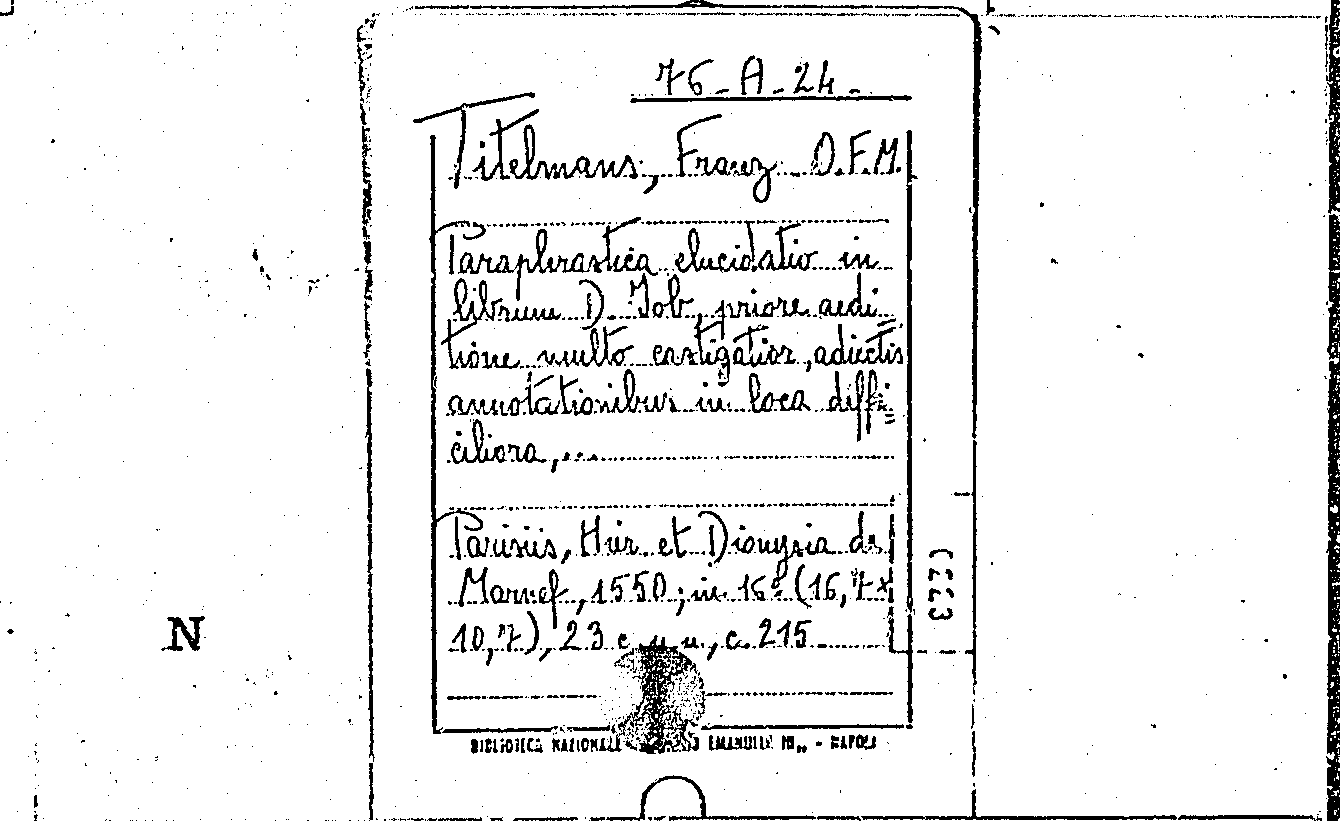 76-A-24-
Titelmans, Franz O.F.M.
Paraphrastica elucidatio in
librum D. Iob, priore aedi=
tione multo castigatior, adiectis
annotationibus in loca diffi=
ciliora,...
Parisiis, Hier. et Dionysia de
Marnef, 1550; in 16º (16,7x
10,7), 23 c. n. n., c. 215
N
BIBLIOTECA NAZIONALE EMANUELE III„ - NAPOLI